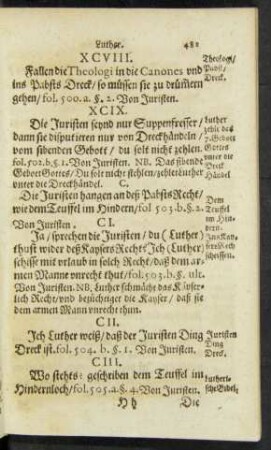 Luther. 481
XCVIII.
Fallen die Theologi in die Canones vnd
ins Pabsts Dreck/ so müssen sie zu drümern
gehen/ fol. 500. a. §. 2. Von Juristen.
Theologi/
Pabst/
Dreck.
XCIX.
Die Juristen seynd nur Suppenfresser/
dann sie disputieren nur von Dreckhändeln/
vom sibenden Gebott/ du solt nicht zehlen.
fol. 502. b. §. 1. Von Juristen. NB. Das sibende
Gebott Gottes/ Du solt nicht stehlen/ zehlet Luther
vnter die Dreckhändel.
Luther
zehlt deß
7. Gebott
Gottes
vnter die
Dreck
Händel
C.
Die Juristen hangen an deß Pabsts Recht/
wie dem Teuffel im Hindern/ fol 503. b. §. 2.
Von Juristen.
Dem
Teuffel
im Hin-
dern.
CI.
Ja/ sprechen die Juristen/ du (Luther)
thust wider deß Kaysers Recht? Ich (Luther)
schisse mit vrlaub in solch Recht/ daß dem ar-
men Manne vnrecht thut/ fol. 503. b. §. ult.
Von Juristen. NB. Luther schmächt das Käyser-
lich Recht/ vnd bezüchtiget die Kayser/ daß sie
dem armen Mann vnrecht thun.
scheissen.
CII.
Ich Luther weiß/ daß der Juristen Ding
Dreck ist. fol. 504. b. §. 1. Von Juristen.
Juristen
Ding
Dreck.
CIII.
Wo stehts geschriben dem Teuffel im
Hindernloch/ fol. 505. a. §. 4. Von Juristen.
Lutheri-
sche Bibel.
H h Die